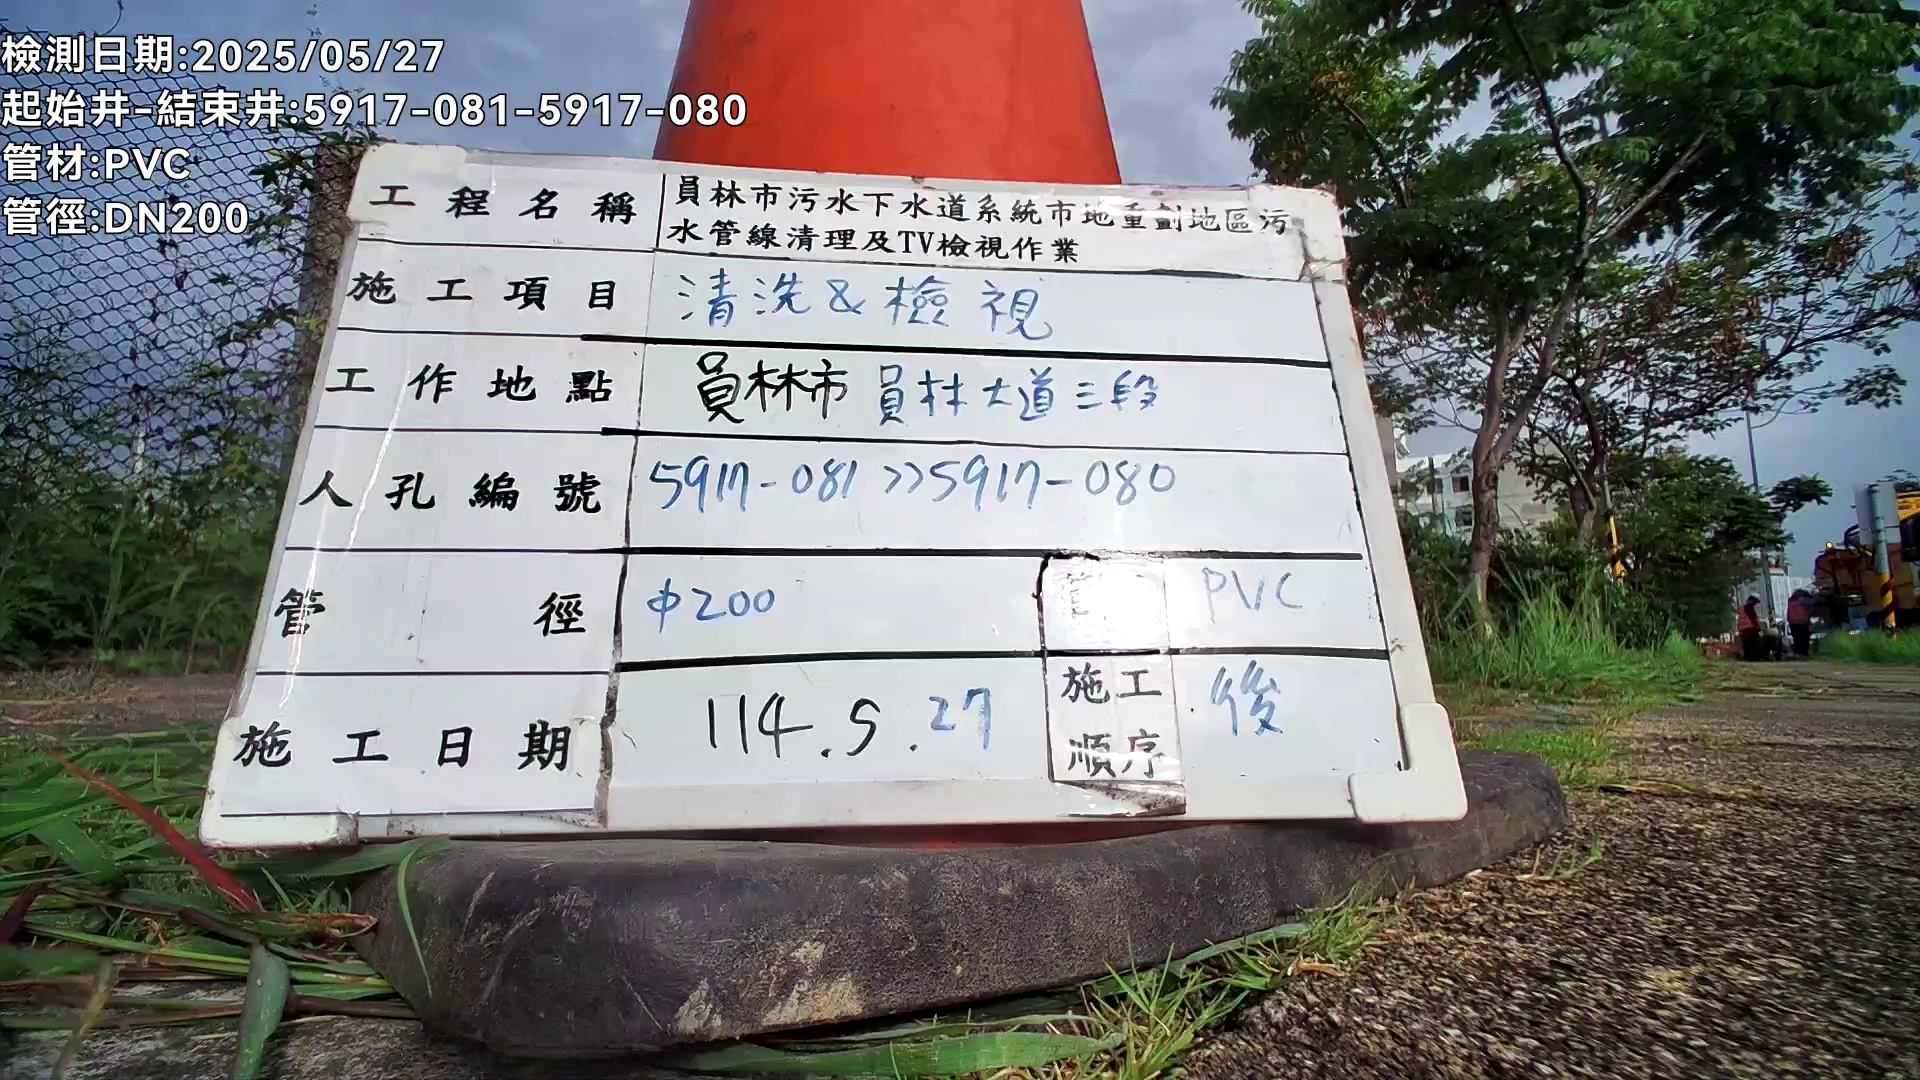 檢測日期:2025/05/27
起始井-結束井:5917-081-5917-080
管材:PVC
管徑:DN200
工程名稱 員林市污水下水道系統市地重劃地區污
水管線清理及TV檢視作業
施工項目 清洗&檢視
工作地點 員林市員林大道三段
人孔編號 5917-081>>5917-080
管徑 φ200 管 PVC
施工日期 114.5.27 施工
順序 後